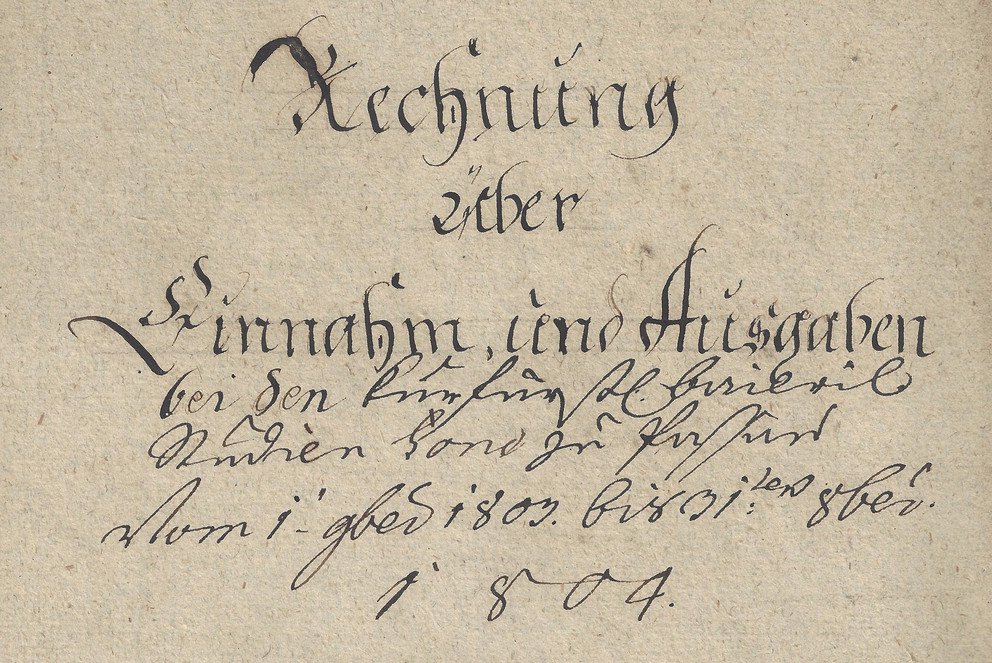 Rechnung
Über
Einnahm, und Ausgaben
bei den kurfürstl. baieril
Studien Fond zu Passau
Vom 1- 9ber 1803. bis 31:ten 8ber.
1804.